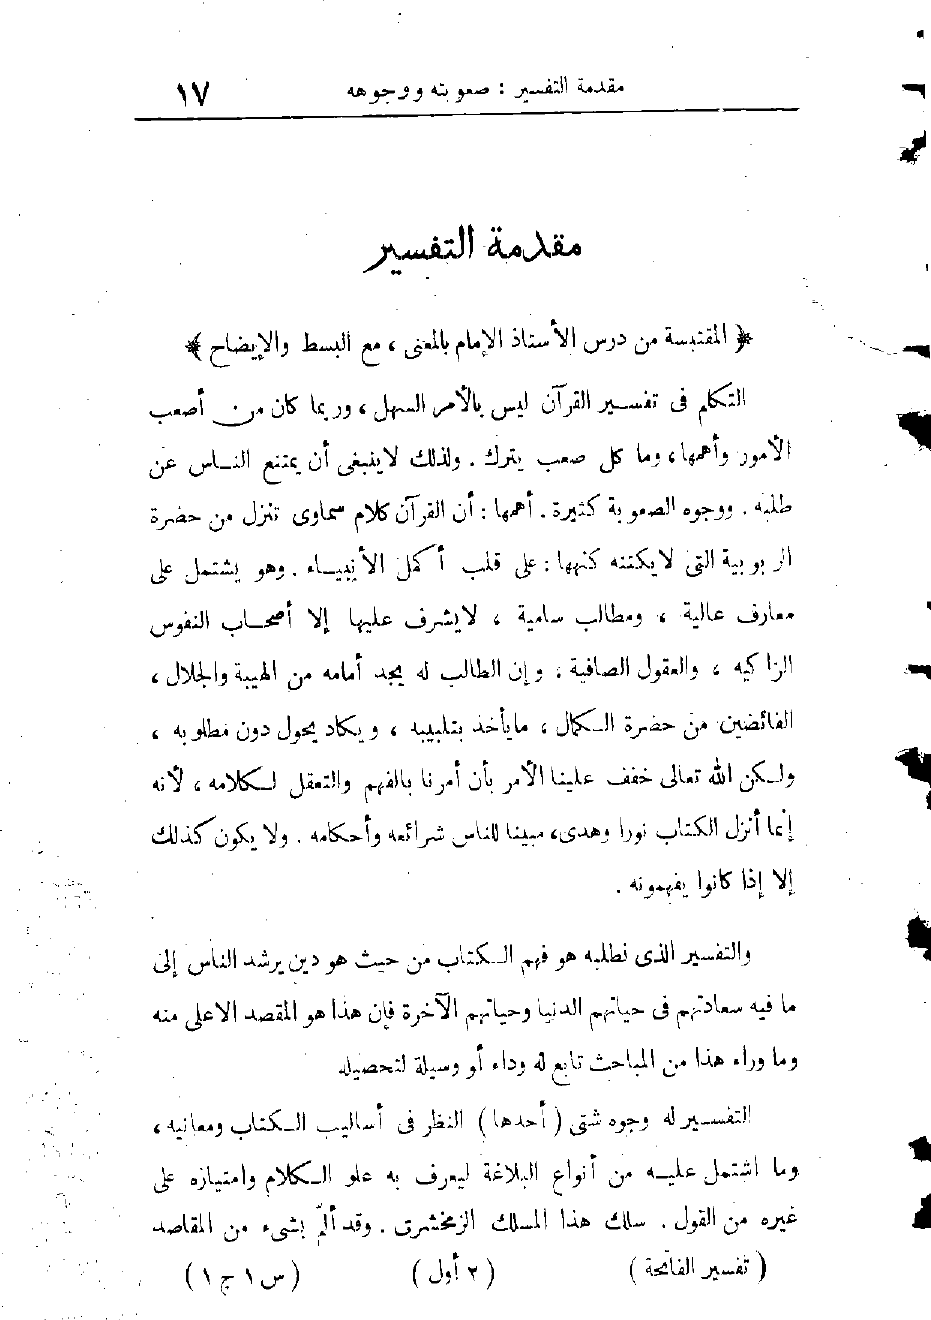 مقدمة التفسير : صعوبته ووجوهه ١٧
مقدمة التفسير
﴿ المقتبسة من درس الأستاذ الإمام بالمعنى ، مع البسط والإيضاح ﴾
التكلم فى تفسير القرآن ليس بالأمر السهل ، وربما كان من أصعب
الأمور وأهمها، وما كل صعب يترك . ولذلك لاينبغى أن يمتنع الناس عن
طلبه . ووجوه الصعوبة كثيرة . أهمها : أن القرآن كلام سماوى تنزل من حضرة
الربوبية التى لايكتنه كنهها : على قلب أكمل الأنبياء . وهو يشتمل على
معارف عالية ، ومطالب سامية ، لايشرف عليها إلا أصحاب النفوس
الزاكيه ، والعقول الصافية ، وإن الطالب له يجد أمامه من الهيبة والجلال ،
الفائضين من حضرة الكمال ، مايأخذ بتلبيبه ، ويكاد يحول دون مطلوبه ،
ولكن الله تعالى خفف علينا الأمر بأن أمرنا بالفهم والتعقل لكلامه ، لأنه
إنما أنزل الكتاب نورا وهدى، مبينا للناس شرائعه وأحكامه . ولا يكون كذلك
إلا إذا كانوا يفهمونه .
والتفسير الذى نطلبه هو فهم الكتاب من حيث هو دين يرشد الناس إلى
ما فيه سعادتهم فى حياتهم الدنيا وحياتهم الآخرة فإن هذا هو المقصد الاعلى منه
وما وراء هذا من المباحث تابع له وداء أو وسيلة لتحصيله
التفسير له وجوه شتى ( أحدها ) النظر فى أساليب الكتاب ومعانيه ،
وما اشتمل عليه من أنواع البلاغة ليعرف به علو الكلام وامتيازه على
غيره من القول . سلك هذا المسلك الزمخشرى . وقد ألمّ بشىء من المقاصد
( تفسير الفاتحة ) ( ٢ أول ) ( س ١ ج ١ )